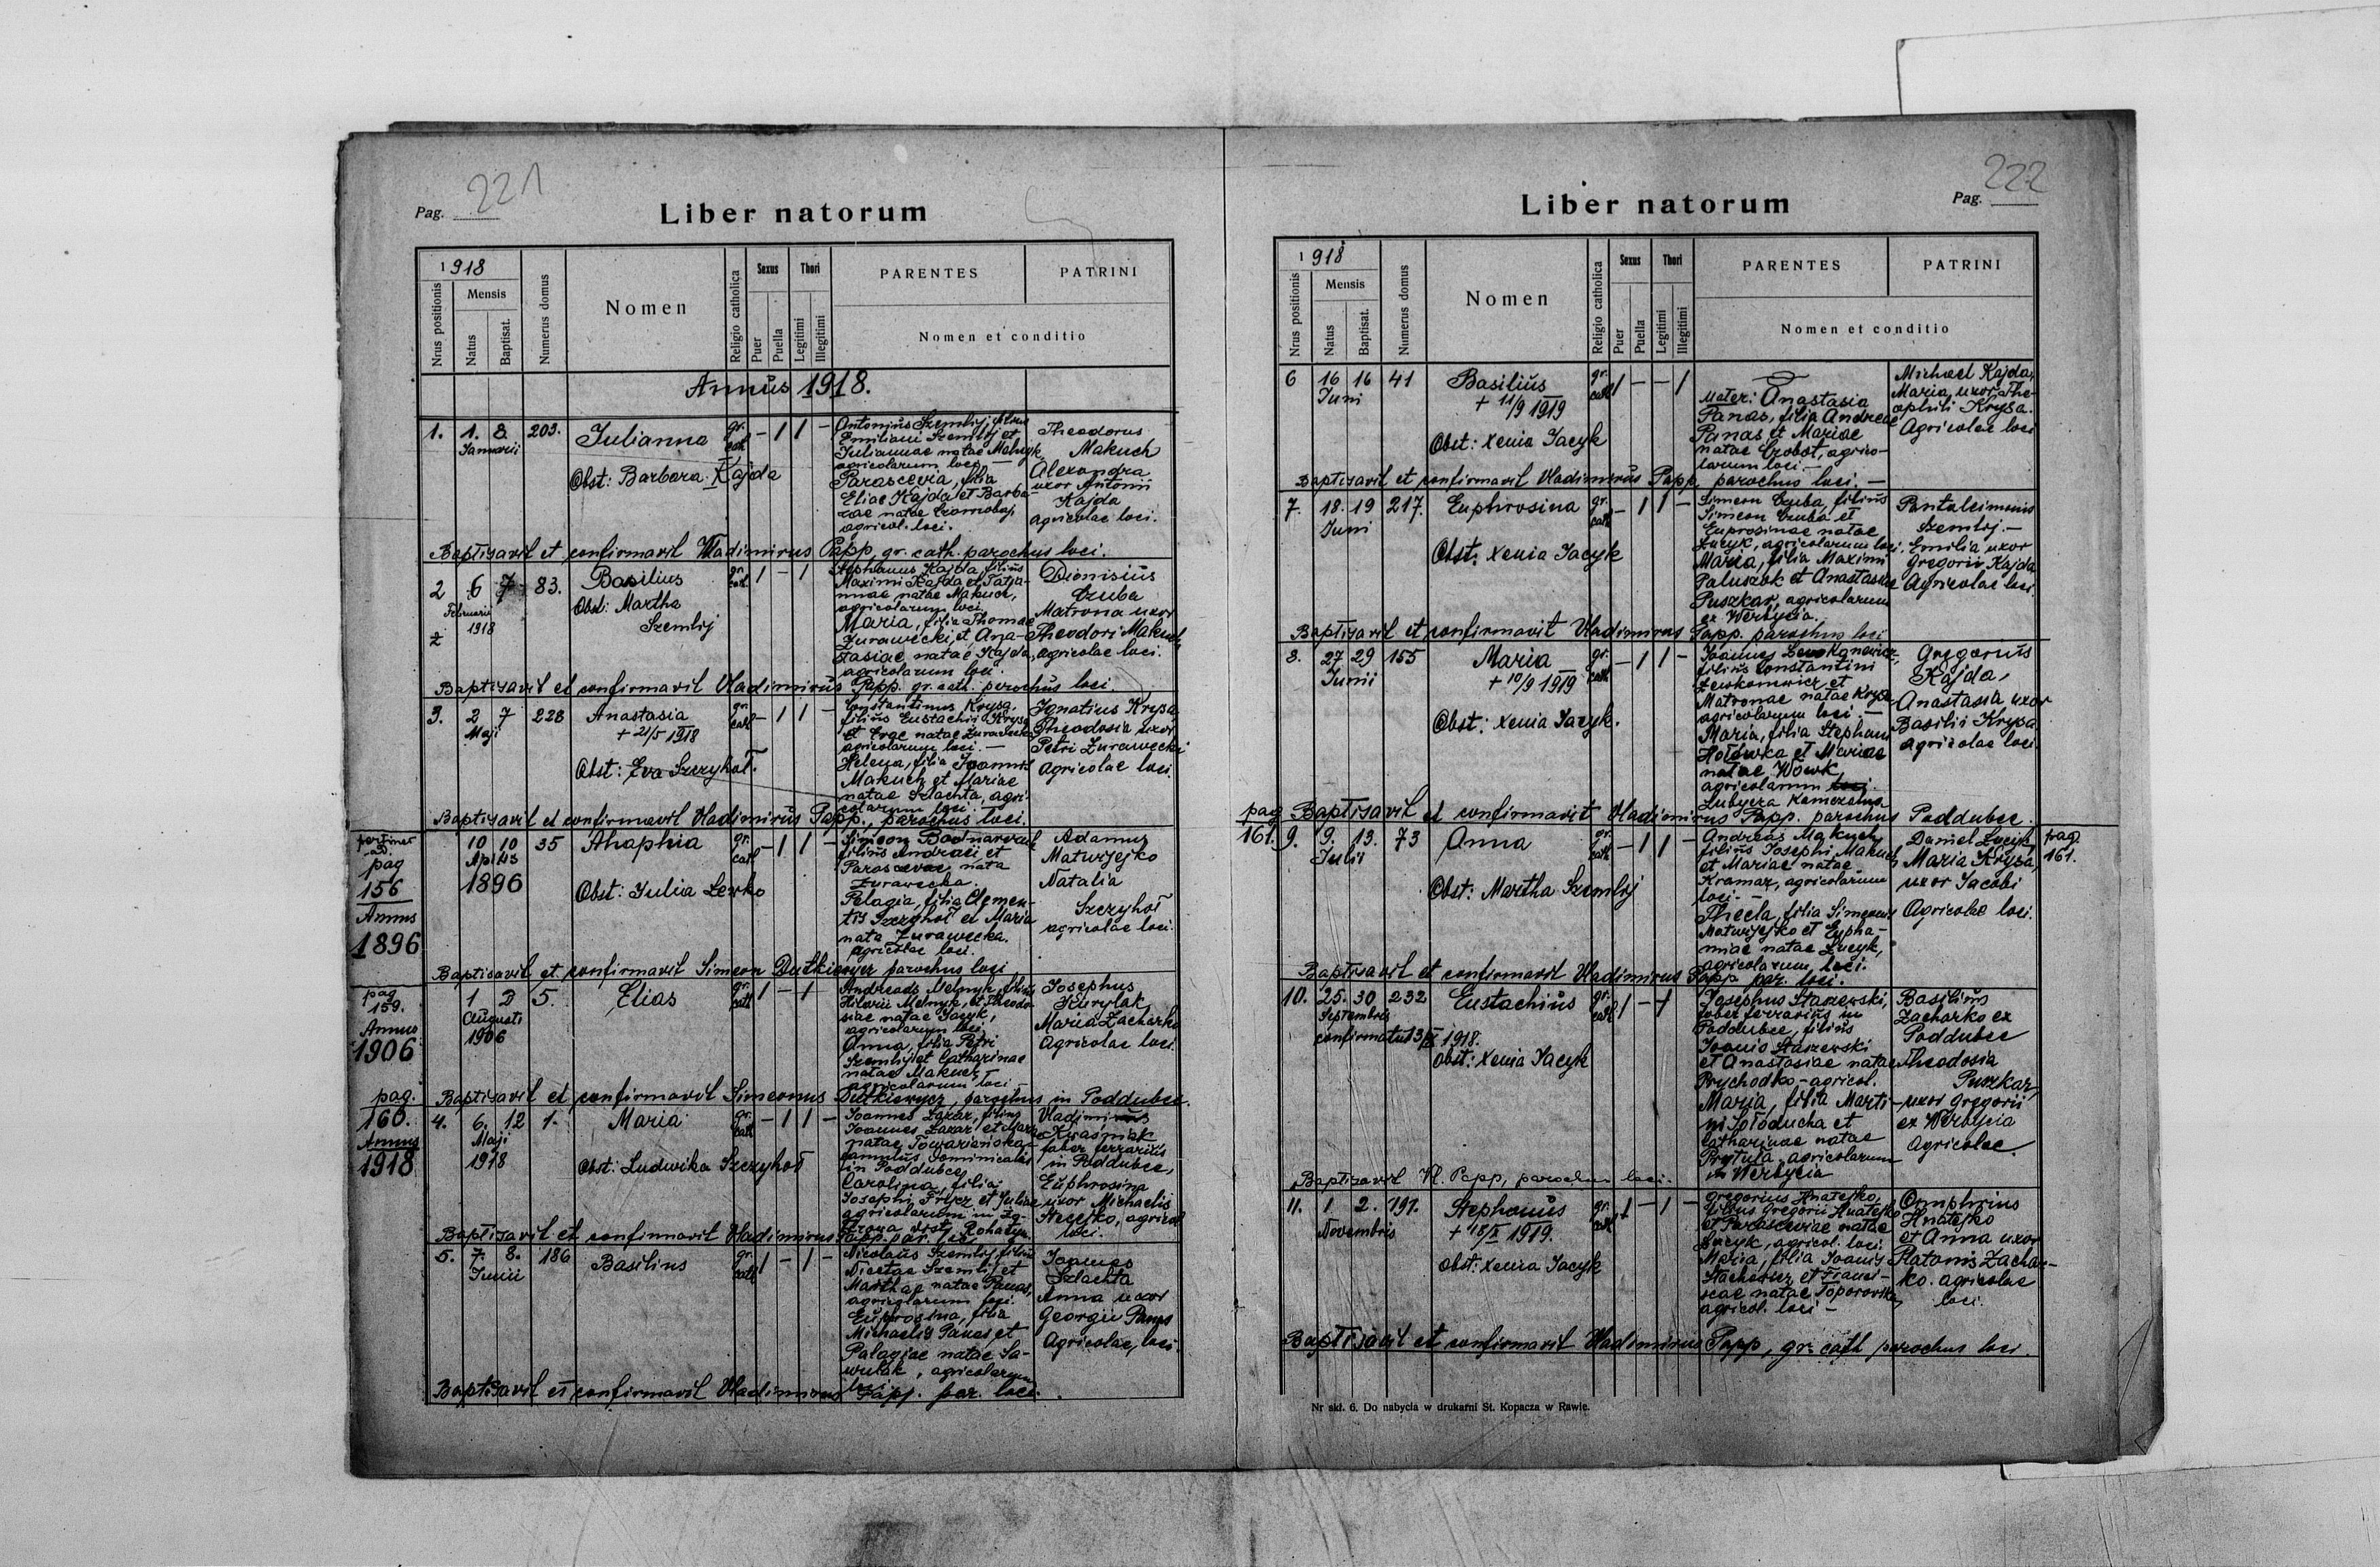 Pag. 221
Liber natorum
1918
Nrus positionis
Mensis
Natus
Baptisat.
Numerus domus
Nomen
Religio catholica
Sexus
Puer
Puella
Thori
Legitimi
Illegitimi
PARENTES
PATRINI
Nomen et conditio
Annus 1918.
1. 1. 8. 203.
Januarii
Julianna
Obst: Barbara Kajda
gr. cath
- 1 1 -
Antonius Szemlij, filius
Emiliani Szemlij et
Juliannae natae Melnyk
agricolarum loci —
Parascevia, filia
Eliae Kajda et Barba-
rae natae
agricol. loci.
Theodorus
Makuch
Alexandra
uxor Antonii
Kajda
agricolae loci.
Baptisavit et confirmavit Vladimirus Papp, gr. cath. parochus loci.
2 6 7 83.
Februarii
1918
Basilius
Obst: Martha
Szemlij
gr. cath
1 - 1
Stephanus Kajda, filius
Maximi Kajda et Tatia-
nnae natae Makuch,
agricolarum loci
Maria, filia Thomae
Zurawecki et Ana-
stasiae natae Kajda,
agricolarum loci.
Dionisius
Czuba
Matrona uxor
Theodori Makuch
agricolae loci.
Baptisavit et confirmavit Vladimirus Papp. gr. cath. parochus loci.
3. 2 7 228
Maji
Anastasia
+ 21/5 1918
Obst: Eva Szczyhoł.
gr. cath
- 1 1 -
Constantinus Krysa,
filius Eustachii Krysa
et Evae natae Zurawecka
agricolarum loci. —
Helena, filia Joannis
Makuch et Mariae
natae Szlachta, agri-
colarum loci. —
Ignatius Krysa
Theodosia uxor
Petri Zurawecki
agricolae loci.
Baptisavit et confirmavit Vladimirus Papp., parochus loci.
pertinet
ad.
pag
156
Annus
1896
10 10 35
Aprilis
1896
Ahaphia
Obst: Julia Lewko
gr. cath
- 1 1 -
Simeon
filius Andreae et
nata
Zurawecka.
Pelagia, filia Clemen-
tis Szczyhoł et Maria
nata Zurawecka.
agricolae loci.
Adamus
Matwijejko
Natalia
Szczyhoł
agricolae loci.
Baptisavit et confirmavit Simeon Dutkiewycz parochus loci
pag
159.
Annus
1906
1 2 5.
Augusti
1906
Elias
gr. cath
1 - 1 -
Andreas Melnyk, filius
Hilarii Melnyk, et Theodo-
siae natae Jacyk,
agricolarum loci
Anna, filia Petri
Szemlij et Catharinae
natae Makuch
agricolarum loci —
Josephus
Maria Zacharko
Agricolae loci.
Baptisavit et confirmavit Simeonus Dutkiewycz, parochus in Poddubce.
pag.
160.
Annus
1918
4. 6. 12 1.
Maji
1918
Maria
Obst: Ludwika Szczyhoł
gr. cath
- 1 1 -
Joannes Lazar, filius
Joannes Lazar et Maria
natae
famulus dominicalis
in Poddubce
Carolina, filia
Josephi et Juliae
agricolarum in
Rohatyn.
Vladimirus
Kwaśniak
faber ferrarius
in Poddubce,
Euphrosina
uxor Michaelis
agricol
loci.
Baptisavit et confirmavit Vladimirus Papp. par. loci
5. 7. 8. 186
Junii
Basilius
gr. cath
1 - 1 -
Nicolaus Szemlij, filius
Nicetae Szemlij et
Marthae natae Panas,
agricolarum loci.
Euprosina, filia
Michaelis Panas et
Palagiae natae Sa-
wulak, agricolarum
loci
Joannes
Szlachta
Anna uxor
Georgii Panas
Agricolae, loci.
Baptisavit et confirmavit Vladimirus Papp. par. loci.
Pag. 222
Liber natorum
1918
Nrus positionis
Mensis
Natus
Baptisat.
Numerus domus
Nomen
Religio catholica
Sexus
Puer
Puella
Thori
Legitimi
Illegitimi
PARENTES
PATRINI
Nomen et conditio
6 16 16 41
Juni
Basilius
+ 11/9 1919
Obst: Xenia Jacyk
gr. cath
1 - - 1
Mater: Anastasia
Panas, filia Andreae
Panas et Mariae
natae Czobot, agrico-
larum loci. —
Michael Kajda,
Maria, uxor The-
ophili Krysa.
Agricolae loci
Baptisavit et confirmavit Vladimirus Papp. parochus loci. —
7. 18. 19 217.
Juni
Euphrosina
Obst: Xenia Jacyk
gr. cath
- 1 1 -
Simeon Czuba, filius
Simeon Czuba et
Euprosinae natae
Łucyk, agricolarum loci.
Maria, filia Maximi
Paluszok et Anastasiae
Puszkar, agricolarum
ex Werbycia.
Pantaleimonis
Szemlij. —
Emilia uxor
Gregorii Kajda
Agricolae loci.
Baptisavit et confirmavit Vladimirus Papp. parochus loci
8. 27 29 155
Junii
Maria
+ 10/9 1919
Obst: Xenia Jacyk.
gr. cath
- 1 1 -
Joannes Lewkonewicz,
filius Constantini
Lewkonewicz et
Matronae natae Krysa
agricolarum loci. —
Maria, filia Stephani
Hołówka et Mariae
natae Wowk,
agricolarum loci.
Lubycza Kameralna
Gregorius
Kajda,
Anastasia uxor
Basilii Krysa
agricolae loci
Baptisavit et confirmavit Vladimirus Papp. parochus Poddubce.
pag
161.
9. 9. 13. 73
Julii
Anna
Obst: Martha Szemlij
gr. cath
- 1 1 -
Andreas Makuch
filius Josephi Makuch
et Mariae natae
Kramar, agricolarum
loci. —
Thecla, filia Simeonis
Matwijejko et Eypha-
miae natae Łucyk,
agricolarum loci.
Daniel Łucyk,
Maria Krysa,
uxor Jacobi
Agricolae loci.
pag
161.
Baptisavit et confirmavit Vladimirus Papp par. loci.
10. 25. 30 232
Septembris
confirmatus 1918.
Eustachius
Obst: Xenia Jacyk
gr. cath
1 - 1
Josephus Staszewski,
faber ferrarius in
Poddubce, filius
Joanis Staszewski
et Anastasiae natae
Prychodko - agricol.
Maria, filia Marti-
ni Sołoducha et
Catharinae natae
Prytuła agricolarum
in Werbycia
Basilius
Zacharko ex
Poddubce
Theodosia
Puszkar,
uxor Gregorii
ex Werbycia
Agricolae.
Baptisavit Vl. Papp, parochus loci.
11. 1 2. 191.
Novembris
Stephanus
+ 18/X 1919.
Obst: Xenia Jacyk
gr. cath
1 - 1 -
Gregorius Hnatejko,
filius Gregorii Hnatejko
et Parasceviae natae
Łucyk, agricol. loci
Maria, filia Joanis
et Franci-
scae natae
agricol. loci —
Omphrius
Hnatejko
et Anna uxor
Platonis Zachar-
ko. agricolae
loci.
Baptisavit et confirmavit Vladimirus Papp, gr. cath parochus loci.
Nr skł. 6. Do nabycia w drukarni St. Kopacza w Rawie.